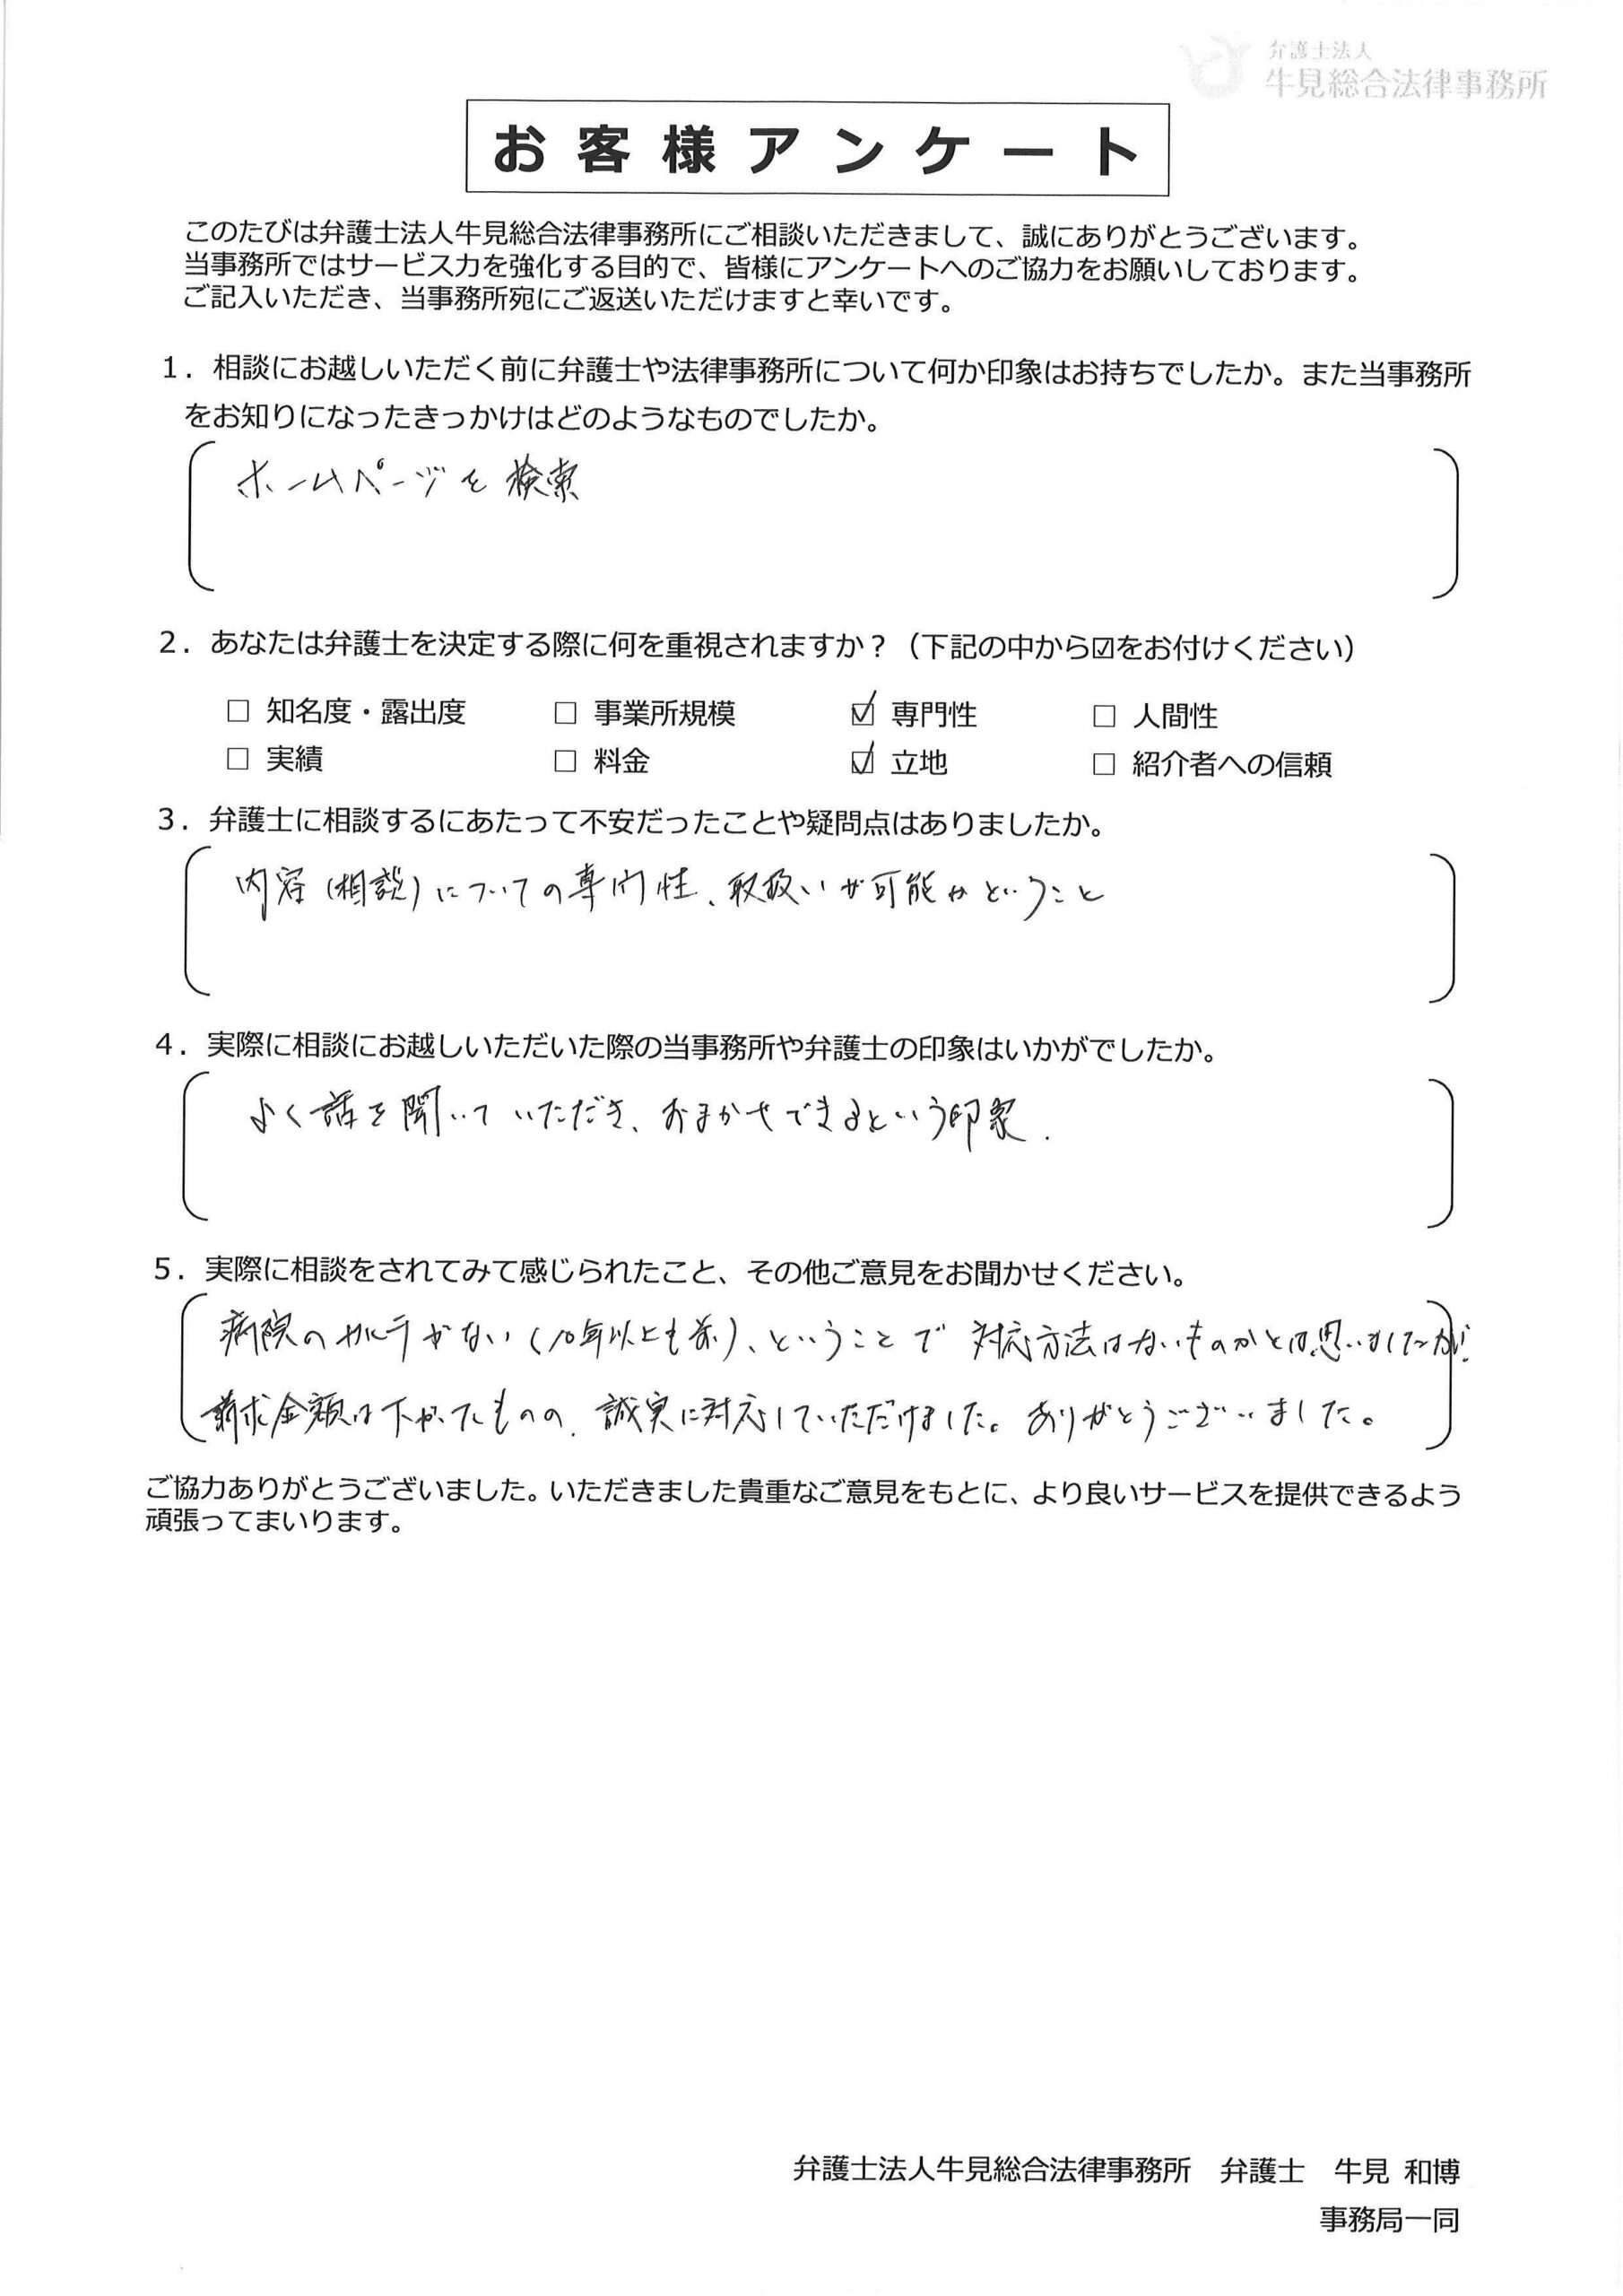 弁護士法人
牛見総合法律事務所
お客様アンケート
このたびは弁護士法人牛見総合法律事務所にご相談いただきまして、誠にありがとうございます。
当事務所ではサービス力を強化する目的で、皆様にアンケートへのご協力をお願いしております。
ご記入いただき、当事務所宛にご返送いただけますと幸いです。
1．相談にお越しいただく前に弁護士や法律事務所について何か印象はお持ちでしたか。また当事務所
をお知りになったきっかけはどのようなものでしたか。
ホームページを検索
2．あなたは弁護士を決定する際に何を重視されますか？（下記の中から☑をお付けください）
□ 知名度・露出度 □ 事業所規模 ☑ 専門性 □ 人間性
□ 実績 □ 料金 ☑ 立地 □ 紹介者への信頼
3．弁護士に相談するにあたって不安だったことや疑問点はありましたか。
内容（相談）についての専門性、取扱いが可能かということ
4．実際に相談にお越しいただいた際の当事務所や弁護士の印象はいかがでしたか。
よく話を聞いていただき、おまかせできるという印象.
5．実際に相談をされてみて感じられたこと、その他ご意見をお聞かせください。
病院のカルテがない（10年以上も前）、ということで対応方法はないものかとは思いましたが、
請求金額は下がったものの、誠実に対応していただけました。ありがとうございました。
ご協力ありがとうございました。いただきました貴重なご意見をもとに、より良いサービスを提供できるよう
頑張ってまいります。
弁護士法人牛見総合法律事務所　弁護士　牛見 和博
事務局一同